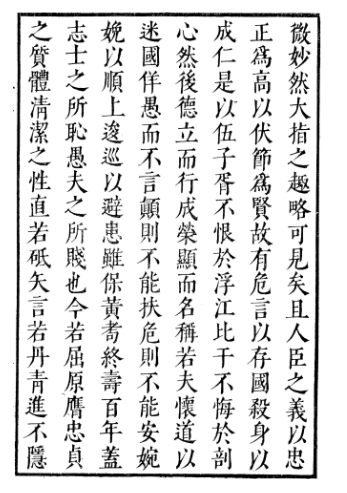 微妙然大指之趣略可見矣且人臣之義以忠
正爲高以伏節爲賢故有危言以存國殺身以
成仁是以伍子胥不恨於浮江比干不悔於剖
心然後德立而行成榮顯而名稱若夫懷道以
迷國佯愚而不言顛則不能扶危則不能安婉
娩以順上逡巡以避患雖保黃耇終壽百年蓋
志士之所恥愚夫之所賤也今若屈原膺忠貞
之質體淸潔之性直若砥矢言若丹靑進不隱